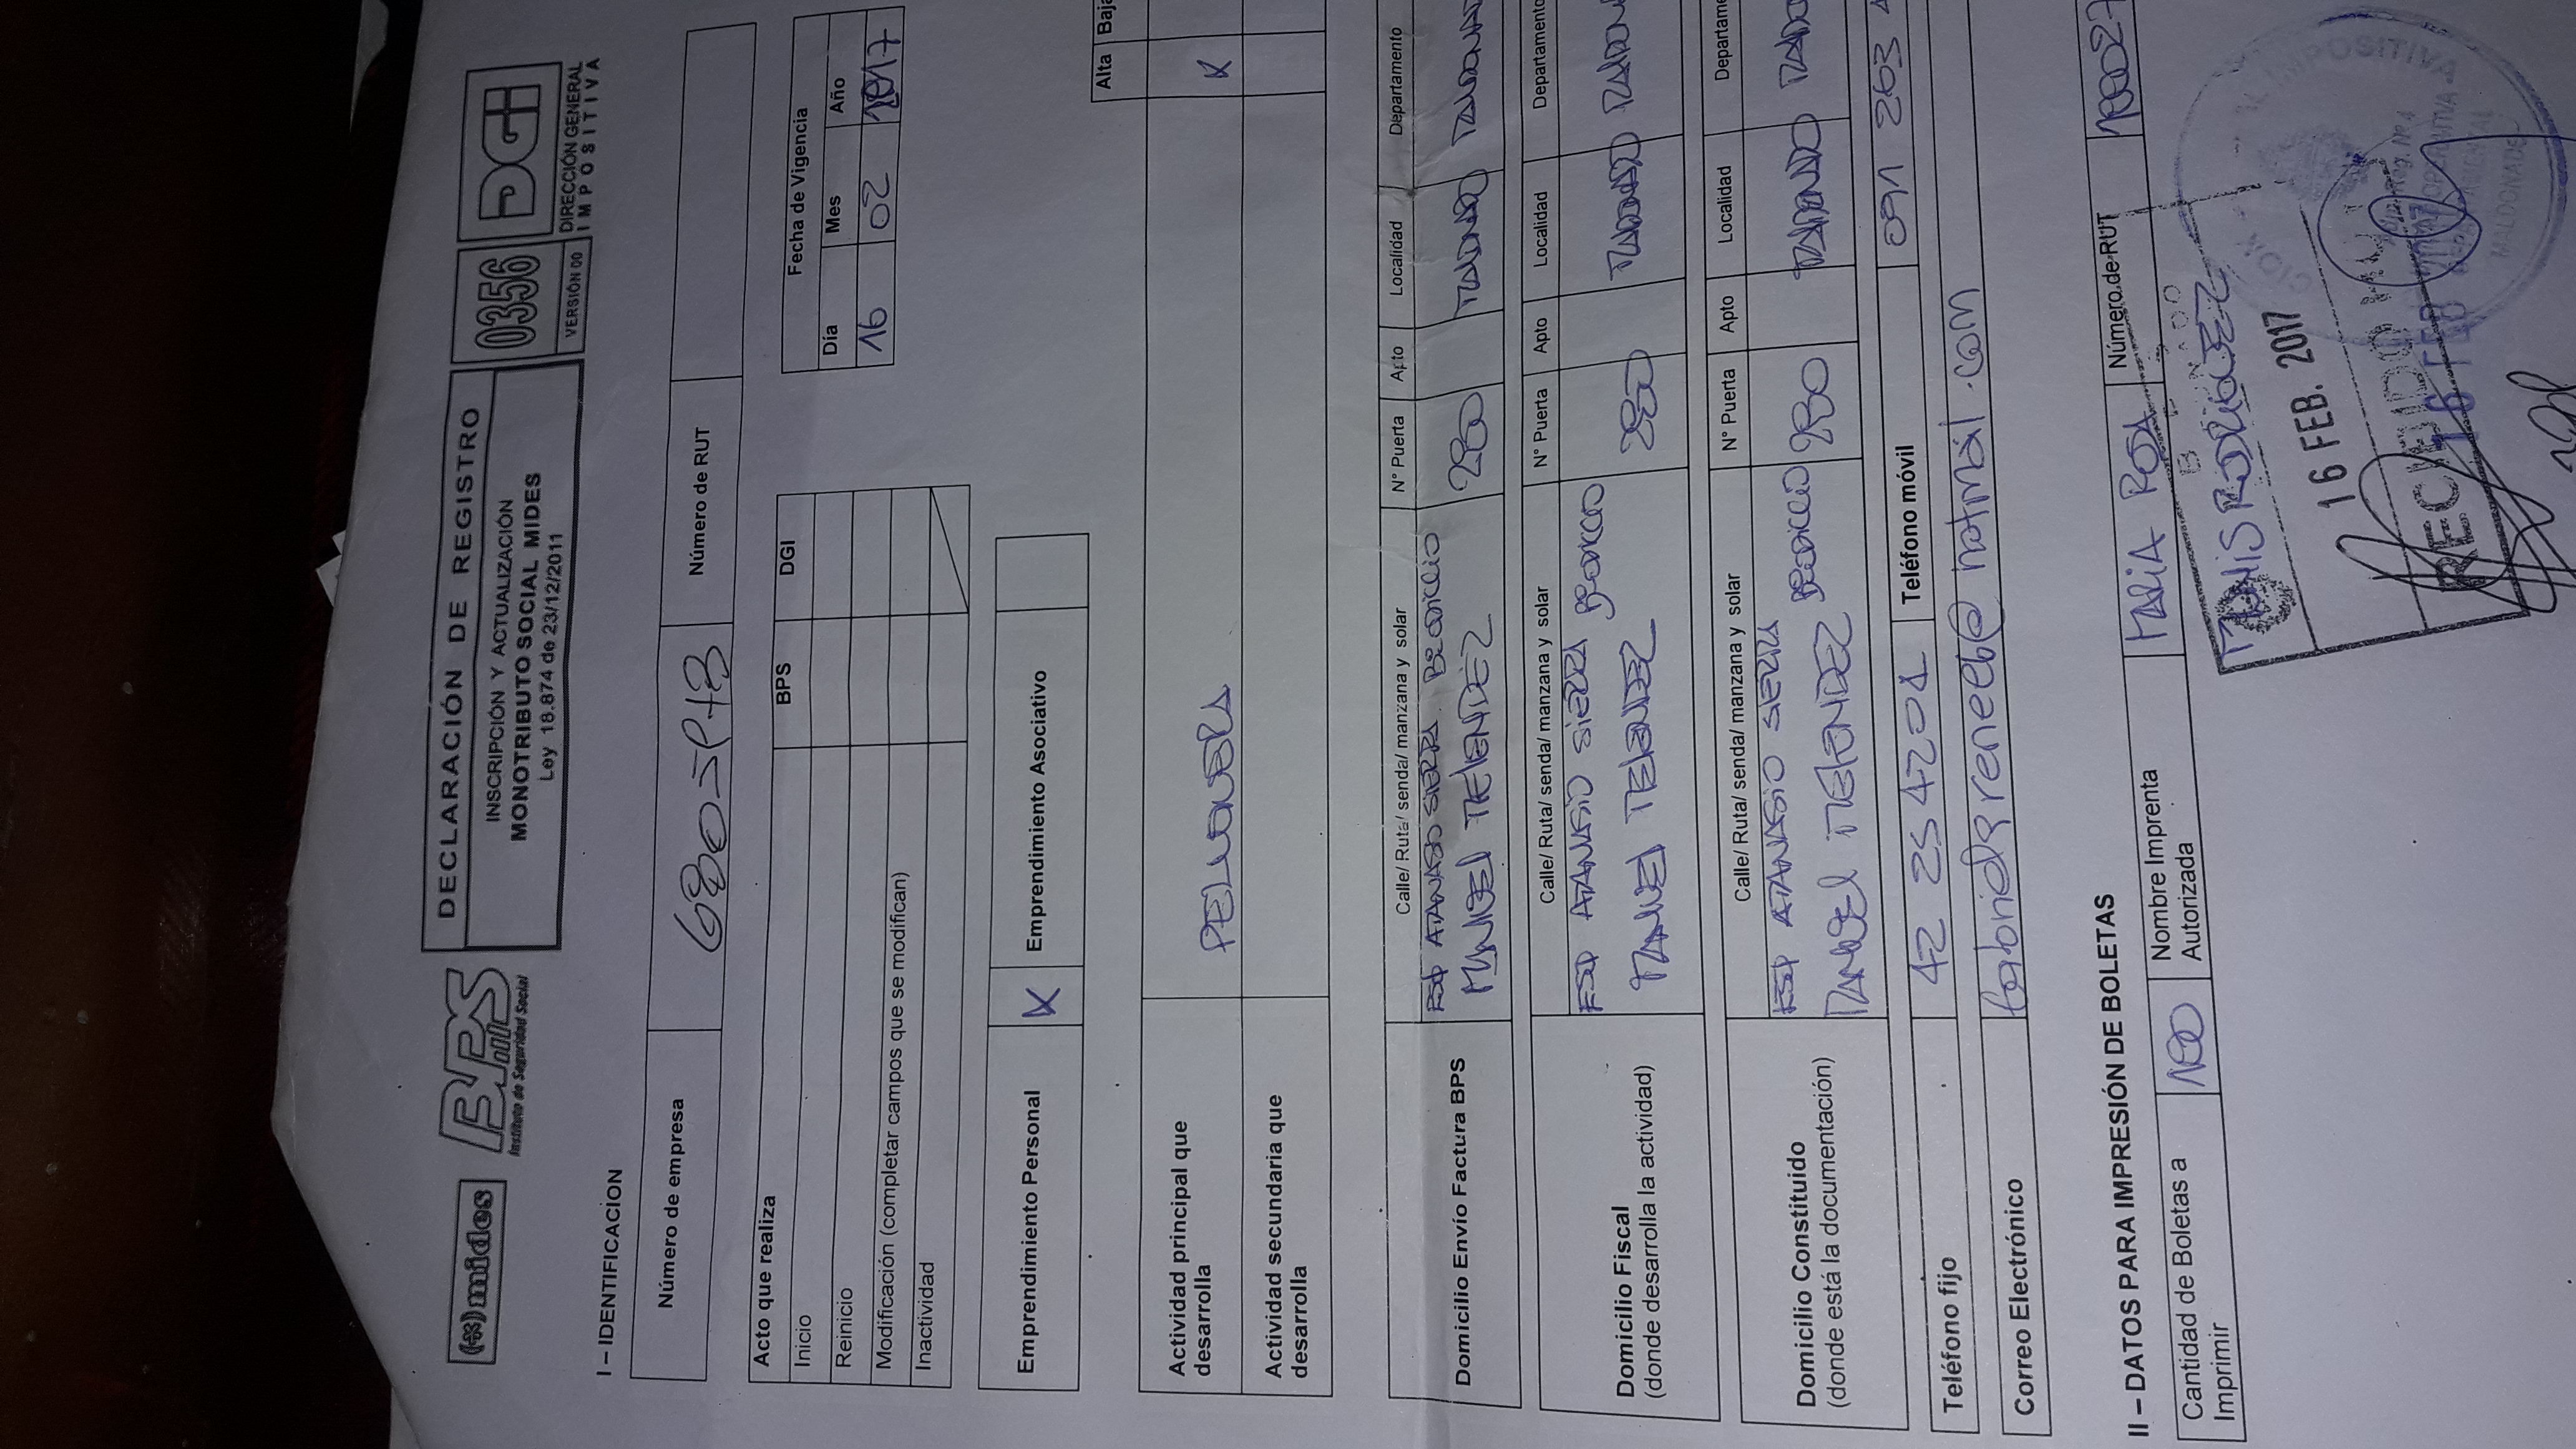 mides
BPS
Instituto de Seguridad Social
DECLARACIÓN DE REGISTRO
INSCRIPCIÓN Y ACTUALIZACIÓN
MONOTRIBUTO SOCIAL MIDES
Ley 18.874 de 23/12/2011
0356
VERSIÓN 00
DGI
DIRECCIÓN GENERAL
IMPOSITIVA
I – IDENTIFICACION
Número de empresa
Número de RUT
Acto que realiza BPS DGI
Inicio
Reinicio
Modificación (completar campos que se modifican)
Inactividad
Fecha de Vigencia
Día Mes Año
16 02 2017
Emprendimiento Personal X Emprendimiento Asociativo
Alta Baja
Actividad principal que
desarrolla
X
Actividad secundaria que
desarrolla
Calle/ Ruta/ senda/ manzana y solar N° Puerta Apto Localidad Departamento
Domicilio Envío Factura BPS
ESQ ATANASIO SIERRA
MANUEL MELENDEZ 280 MALDONADO MALDONADO
Calle/ Ruta/ senda/ manzana y solar N° Puerta Apto Localidad Departamento
Domicilio Fiscal
(donde desarrolla la actividad)
ESQ ATANASIO SIERRA
MANUEL MELENDEZ 280 MALDONADO MALDON
Calle/ Ruta/ senda/ manzana y solar N° Puerta Apto Localidad Departame
Domicilio Constituido
(donde está la documentación)
ESQ ATANASIO SIERRA
MANUEL MELENDEZ 280 MALDONADO MALDO
Teléfono fijo 42 254201 Teléfono móvil 091 263
Correo Electrónico @hotmail.com
II – DATOS PARA IMPRESIÓN DE BOLETAS
Cantidad de Boletas a
Imprimir
100
Nombre Imprenta
Autorizada
MARIA ROSA
RODRIGUEZ
Número de RUT 100027
BPS
16 FEB. 2017
RECIBIDO
16 FEB 2017
MALDONADO